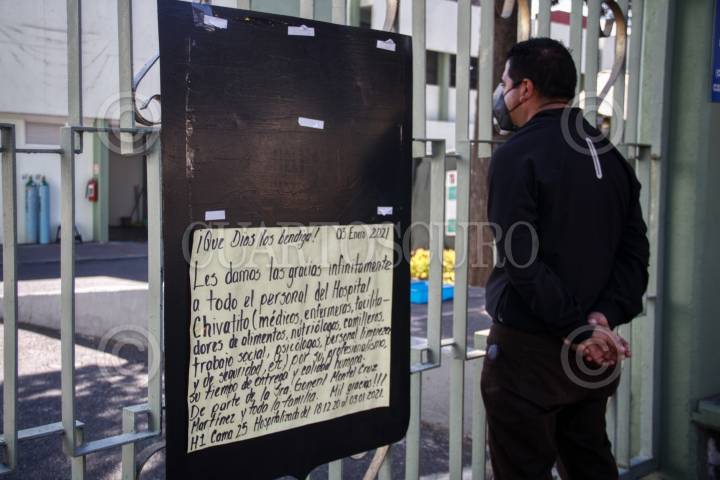 ¡Que Dios los bendiga! 03 Enero /2021
Les damos las gracias infinitamente
a todo el personal del Hospital
Chivatito (médicos, enfermeras, facilita-
dores de alimentos, nutriólogas, camilleros,
trabajo social, psicologas, personal limpieza
y de seguridad, etc) por su profesionalismo,
su tiempo de entrega y calidad humana.
De parte de la Sra. General Montel Cruz
Martínez y toda la familia. Mil gracias!!!
H1 Cama 25 Hospitalizado del 18.12.20 al 03.01.2021
CUARTOSCURO